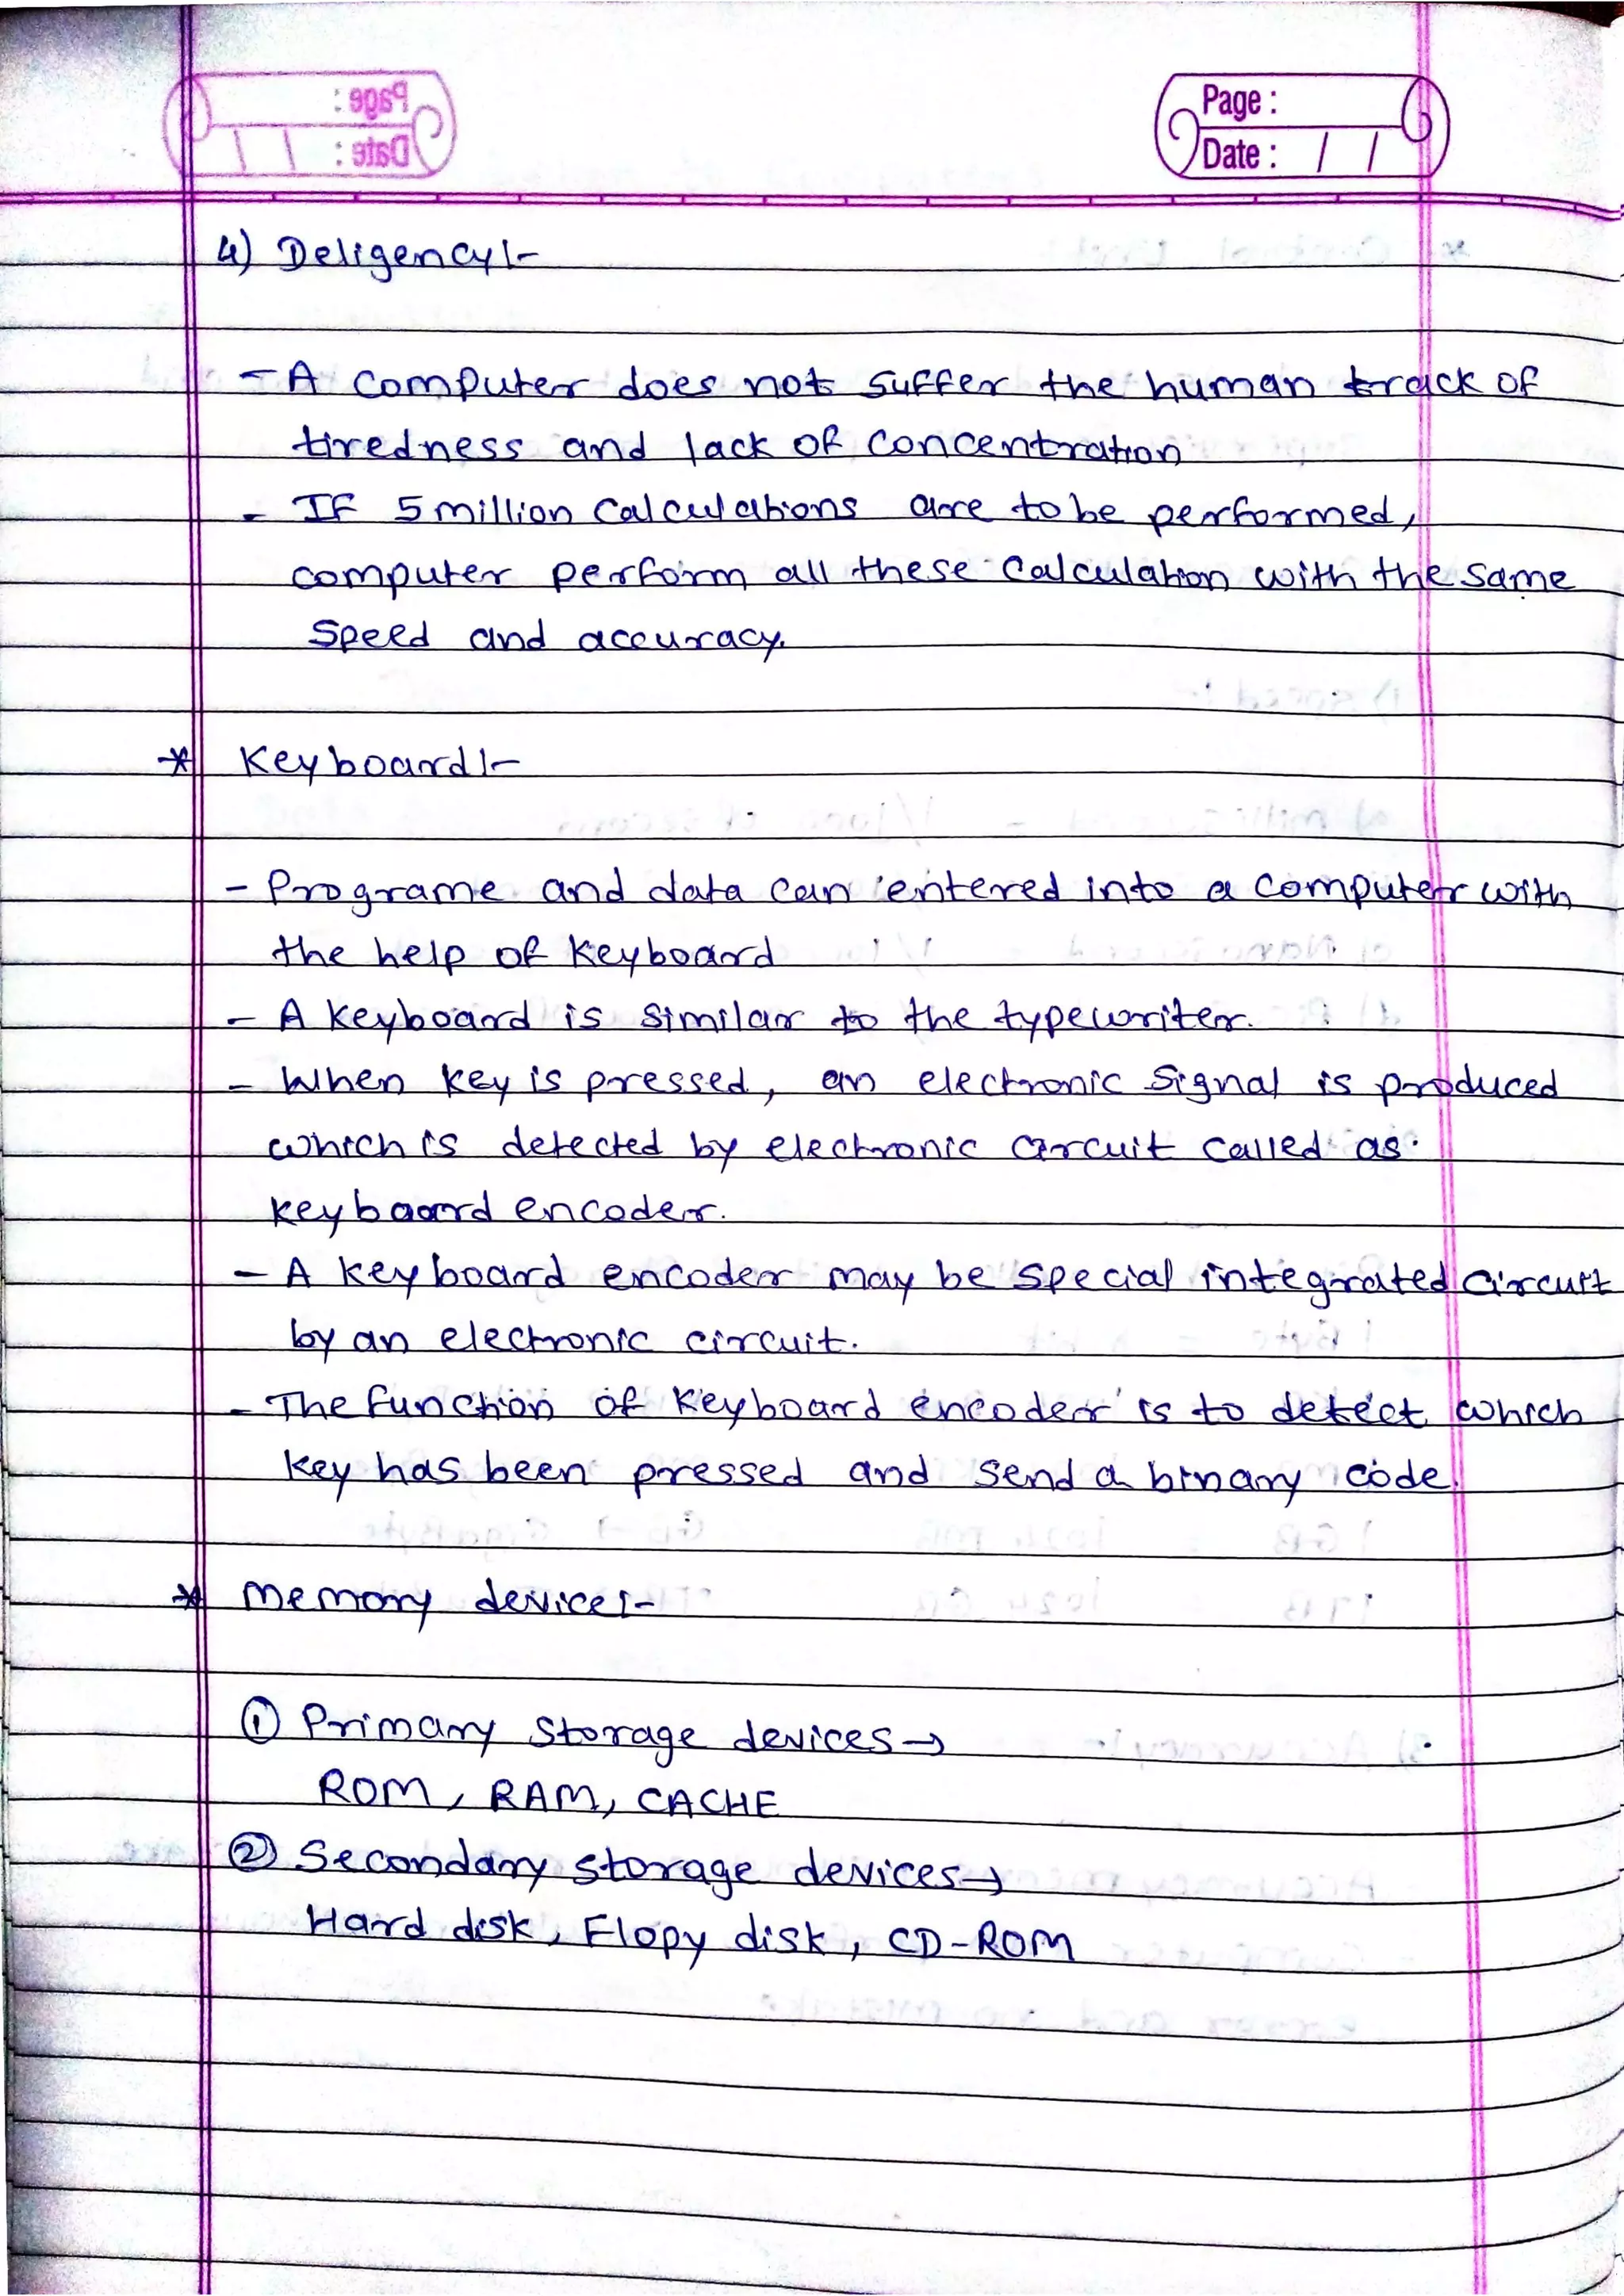 Page :
Date : / /
4) Deligency :-
- A computer does not suffer the human track of
tiredness and lack of concentration
- If 5 million calculations are to be performed,
computer perform all these calculation with the same
speed and accuracy.
* Keyboard :-
- Programe and data can entered into a computer with
the help of keyboard
- A keyboard is similar to the typewriter.
- When key is pressed, an electronic signal is produced
which is detected by electronic circuit called as
keyboard encoder.
- A keyboard encoder may be special integrated circuit
by an electronic circuit.
- The function of keyboard encoder is to detect which
key has been pressed and send a binary code.
* Memory device :-
① Primary storage devices →
ROM, RAM, CACHE
② Secondary storage devices →
Hard disk, Flopy disk, CD-ROM